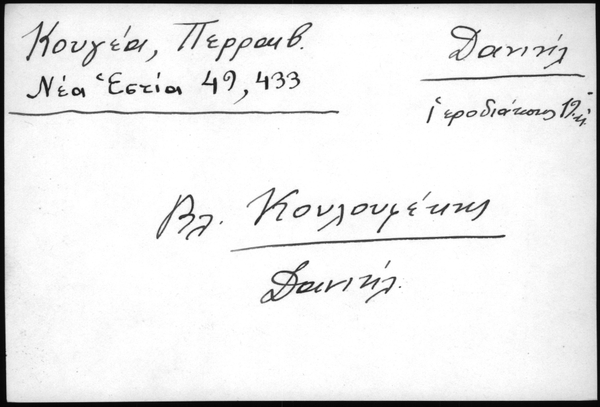 Κουγέα, Περραιβ.
Νέα Ἑστία 49, 433
Δανιήλ
ἱεροδιάκονος 19
Βλ. Κουλουμέκης
Δανιήλ.